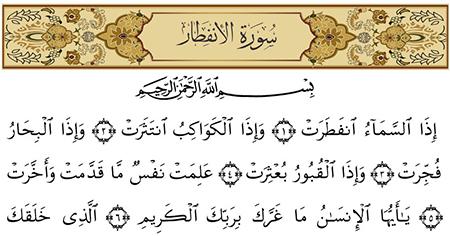 سُورَةُ الانفِطَار
بِسْمِ ٱللَّهِ ٱلرَّحْمَٰنِ ٱلرَّحِيمِ
إِذَا ٱلسَّمَآءُ ٱنفَطَرَتْ ﴿١﴾ وَإِذَا ٱلْكَوَاكِبُ ٱنتَثَرَتْ ﴿٢﴾ وَإِذَا ٱلْبِحَارُ
فُجِّرَتْ ﴿٣﴾ وَإِذَا ٱلْقُبُورُ بُعْثِرَتْ ﴿٤﴾ عَلِمَتْ نَفْسٌ مَّا قَدَّمَتْ وَأَخَّرَتْ
﴿٥﴾ يَـٰٓأَيُّهَا ٱلْإِنسَـٰنُ مَا غَرَّكَ بِرَبِّكَ ٱلْكَرِيمِ ﴿٦﴾ ٱلَّذِى خَلَقَكَ